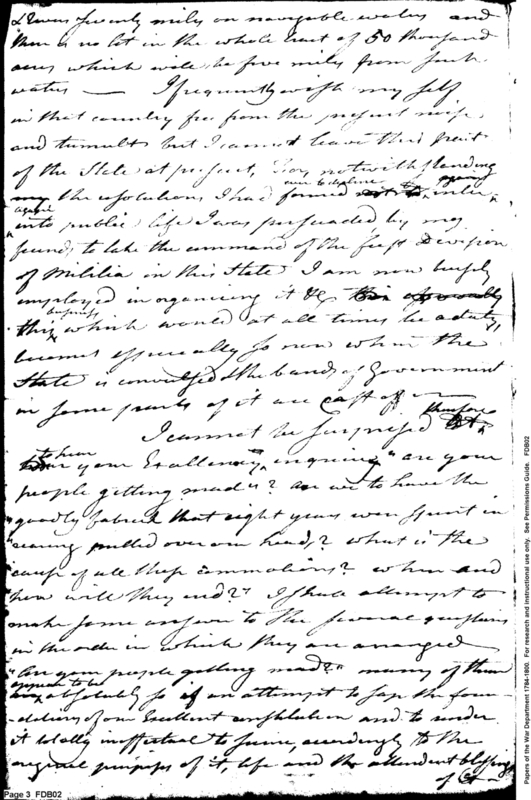 seventy miles on navigable waters and
there is no lot in the whole tract of 50 thousand
acres which will be five miles from such
waters — I frequently wish my self
in that country free from the present noise
and tumults but I cannot leave this part
of the State at present, for notwithstanding
my the resolutions I had formed not to
into public life I was persuaded by my
friends to take the command of the first Division
of Militia in this State I am now busily
employed in organising it &c
this business which would at all times be a duty
becomes especially so now when the
State is convulsed & the bands of Government
in some parts of it are cast off —
I cannot be surprised therefore
to hear your Excellency inquiring "are your
people getting mad"? are we to have the
"goodly fabrick that eight years were spent in
"rearing pulled over our heads? what is the
cause of all these commotions? when and
how will they end?" I shall attempt to
make some answer to the several questions
in the order in which they are arranged
"Are your people getting mad?" many of them
appear to be absolutely so if an attempt to sap the foun
-dations of our Excellent constitution and to render
it totally ineffectual to secure, accordingly to the
original purposes of it, life and the attendent blessings
of it
Page 3 FDB02
Papers of the War Department 1784-1800. For research and instructional use only. See Permissions Guide. FDB02